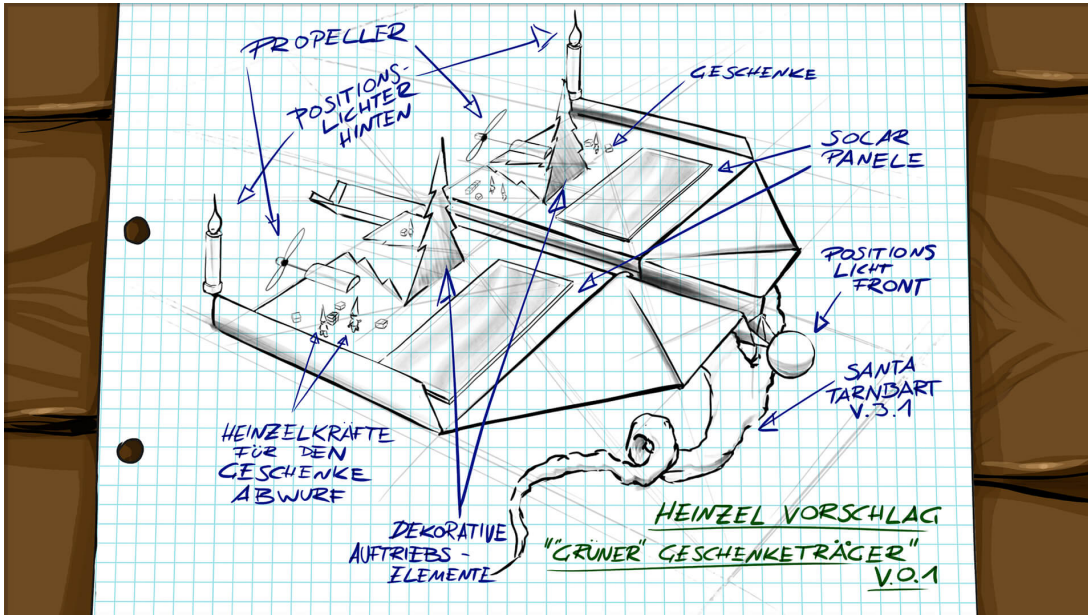 PROPELLER
POSITIONS-
LICHTER
HINTEN
GESCHENKE
SOLAR
PANELE
POSITIONS
LICHT
FRONT
SANTA
TARNBART
V.3.1
HEINZELKRÄFTE
FÜR DEN
GESCHENKE
ABWURF
DEKORATIVE
AUFTRIEBS-
ELEMENTE
HEINZEL VORSCHLAG
""GRÜNER" GESCHENKETRÄGER"
V.0.1